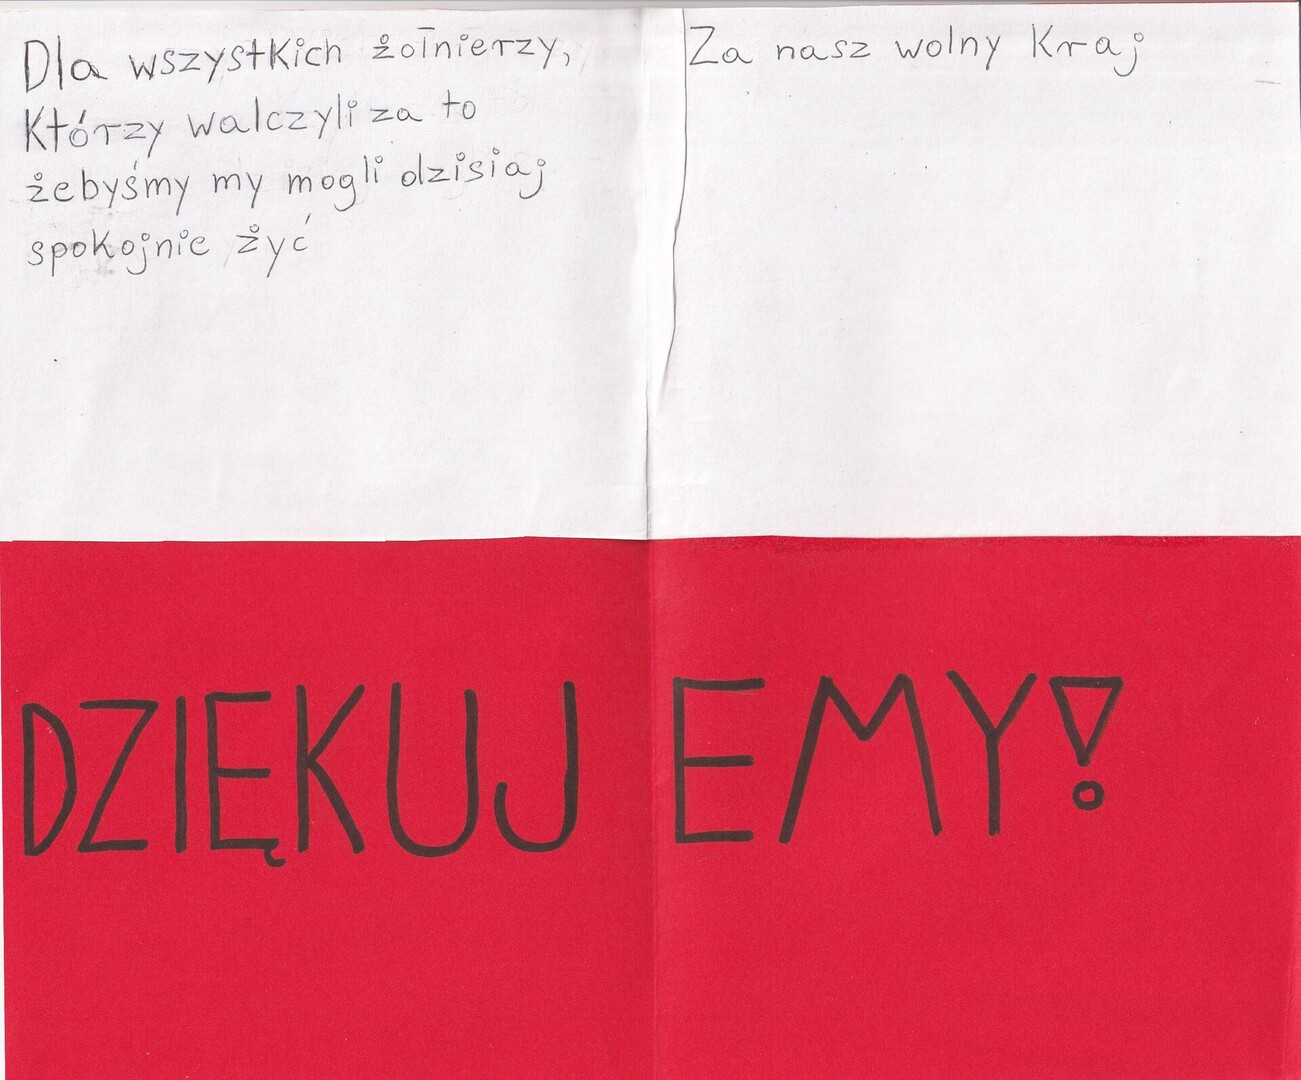 Dla wszystkich żołnierzy,
Którzy walczyli za to
żebyśmy my mogli dzisiaj
spokojnie żyć
Za nasz wolny Kraj
DZIĘKUJEMY!